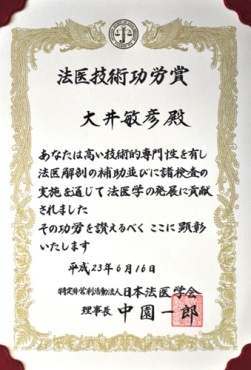 法医技術功労賞
大井敏彦殿
あなたは高い技術的専門性を有し
法医解剖の補助並びに諸検査の
実施を通じて法医学の発展に貢献
されました
その功労を讃えるべくここに顕彰
いたします
平成23年6月16日
特定非営利活動法人日本法医学会
理事長 中園一郎